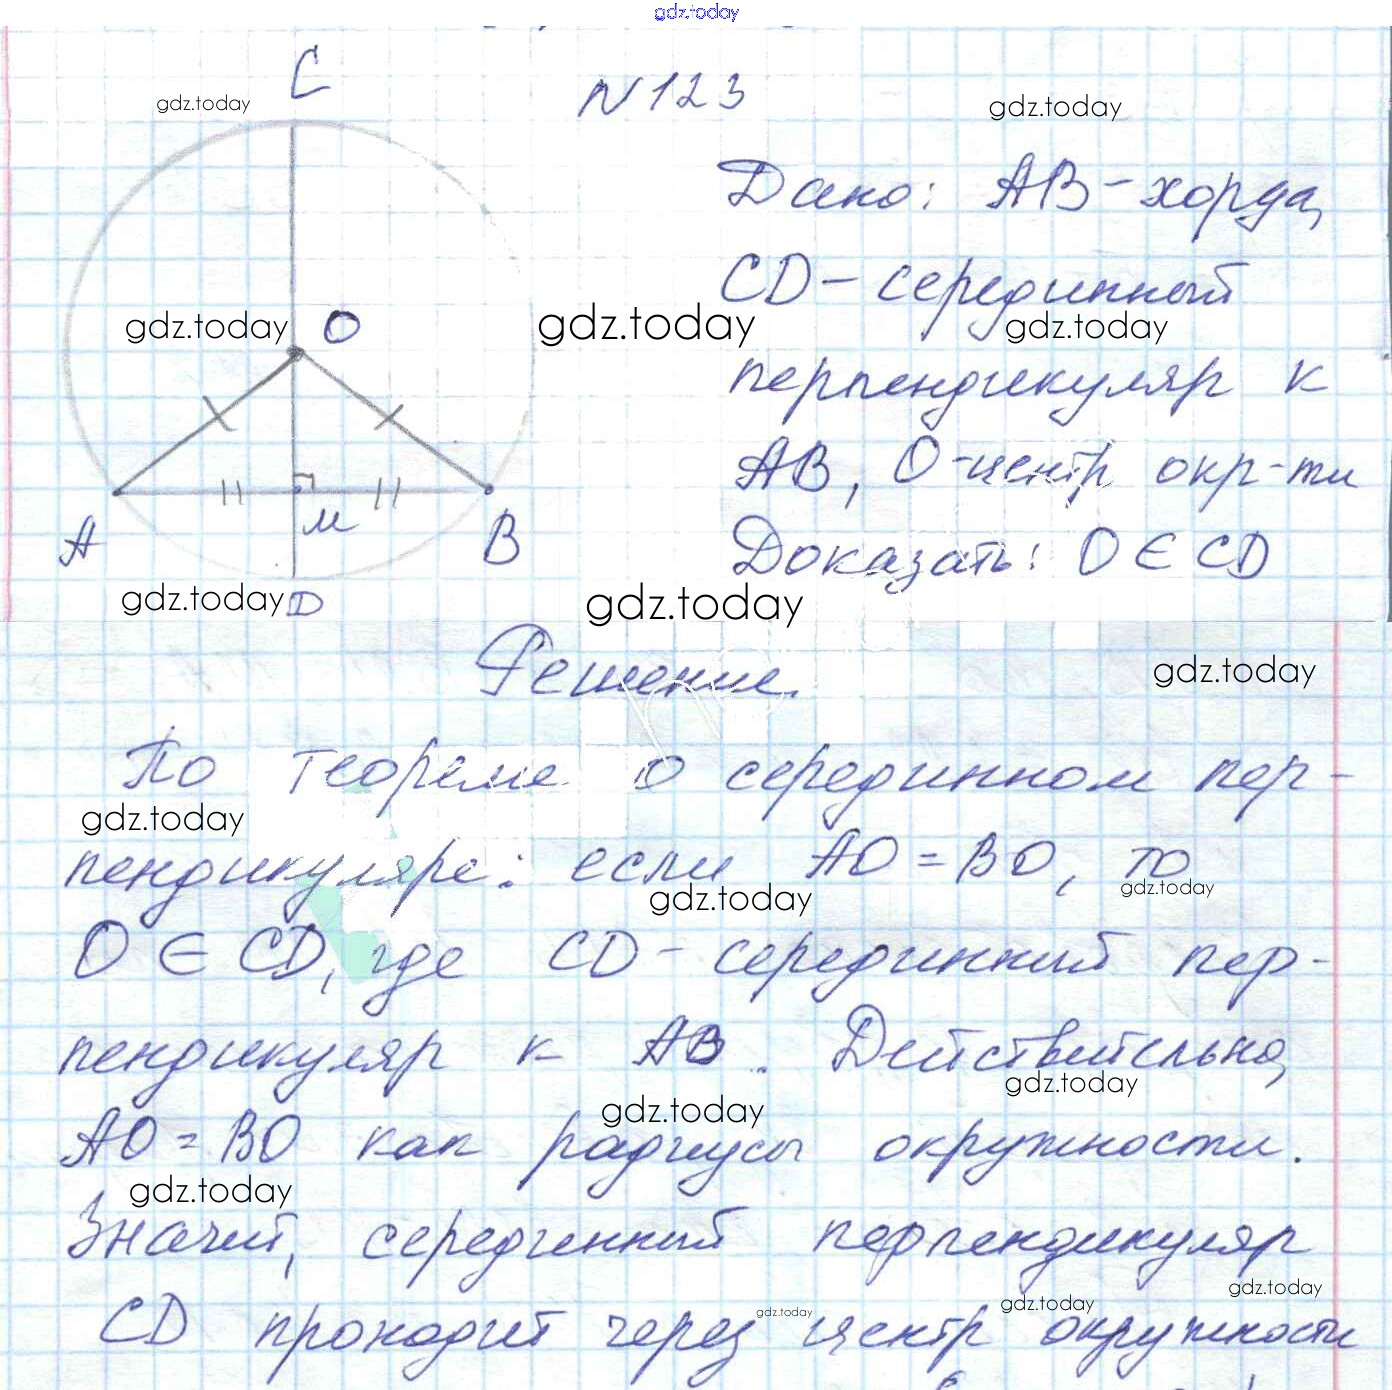 gdz.today
C
N 123
gdz.today
gdz.today
Дано: AB – хорда,
CD – серединный
gdz.today O gdz.today gdz.today
перпендикуляр к
AB, O – центр окр-ти
M
A B
Доказать: O ∈ CD
gdz.today D gdz.today
Решение.
gdz.today
По теореме о серединном пер-
gdz.today
пендикуляре: если AO = BO, то
gdz.today gdz.today
O ∈ CD, где CD – серединный пер-
пендикуляр к AB. Действительно,
gdz.today gdz.today
AO = BO как радиусы окружности.
gdz.today
Значит, серединный перпендикуляр
gdz.today
gdz.today gdz.today
CD проходит через центр окружности